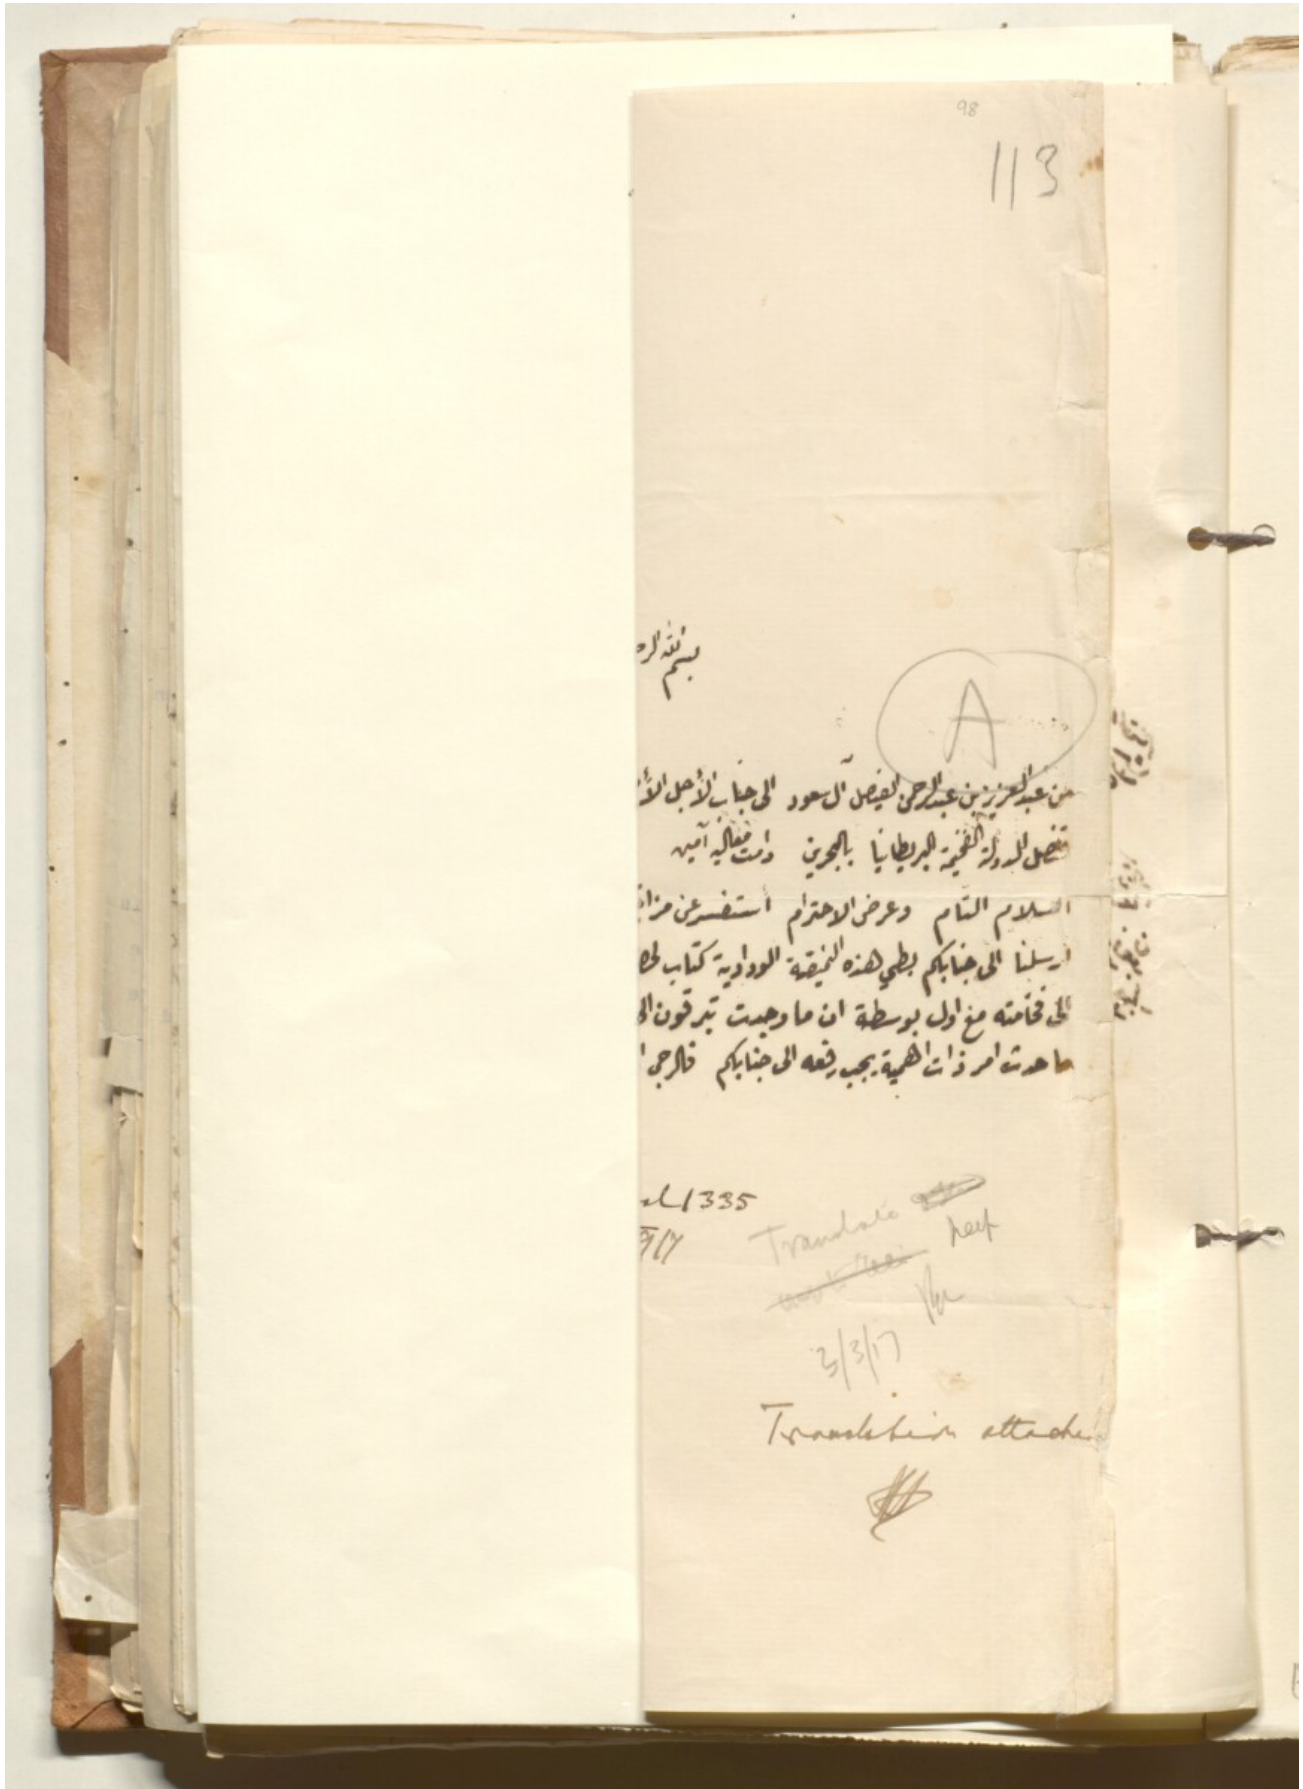 98
113
بسم الله الر
A
من عبد العزيز بن عبد الرحمن الفيصل آل سعود الى جناب الأجل الأ
قنصل الدولة الفخيمة البريطانيا بالبحرين دامت معاليه آمين
السلام التام وعرض الاحترام استفسر عن مزا
ارسلنا الى جنابكم بطي هذه النميقة الودادية كتاب لحض
الى فخامته مع اول بوسطة ان ما وجدت تبرقون ال
ما حدث امر ذات اهمية يجب رفعه الى جنابكم فالرجى ا
1335
Translate
next
3/3/17
Translation attache